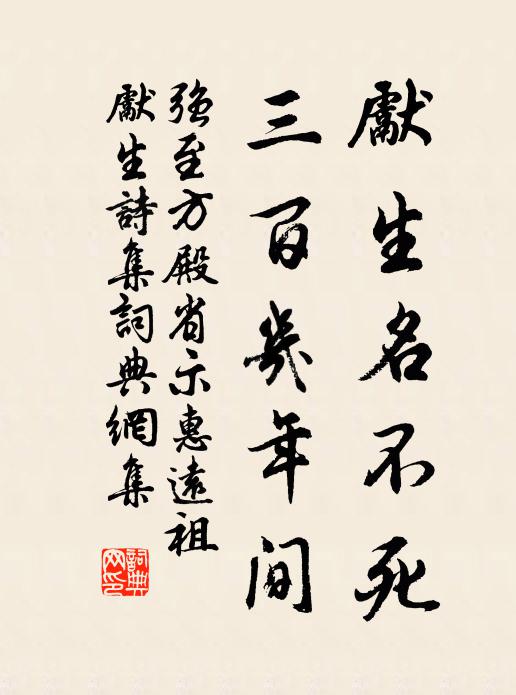 獻生名不死
三百幾年間
強至方殿省示惠遠祖
獻生詩集詞典網集
詞典网印